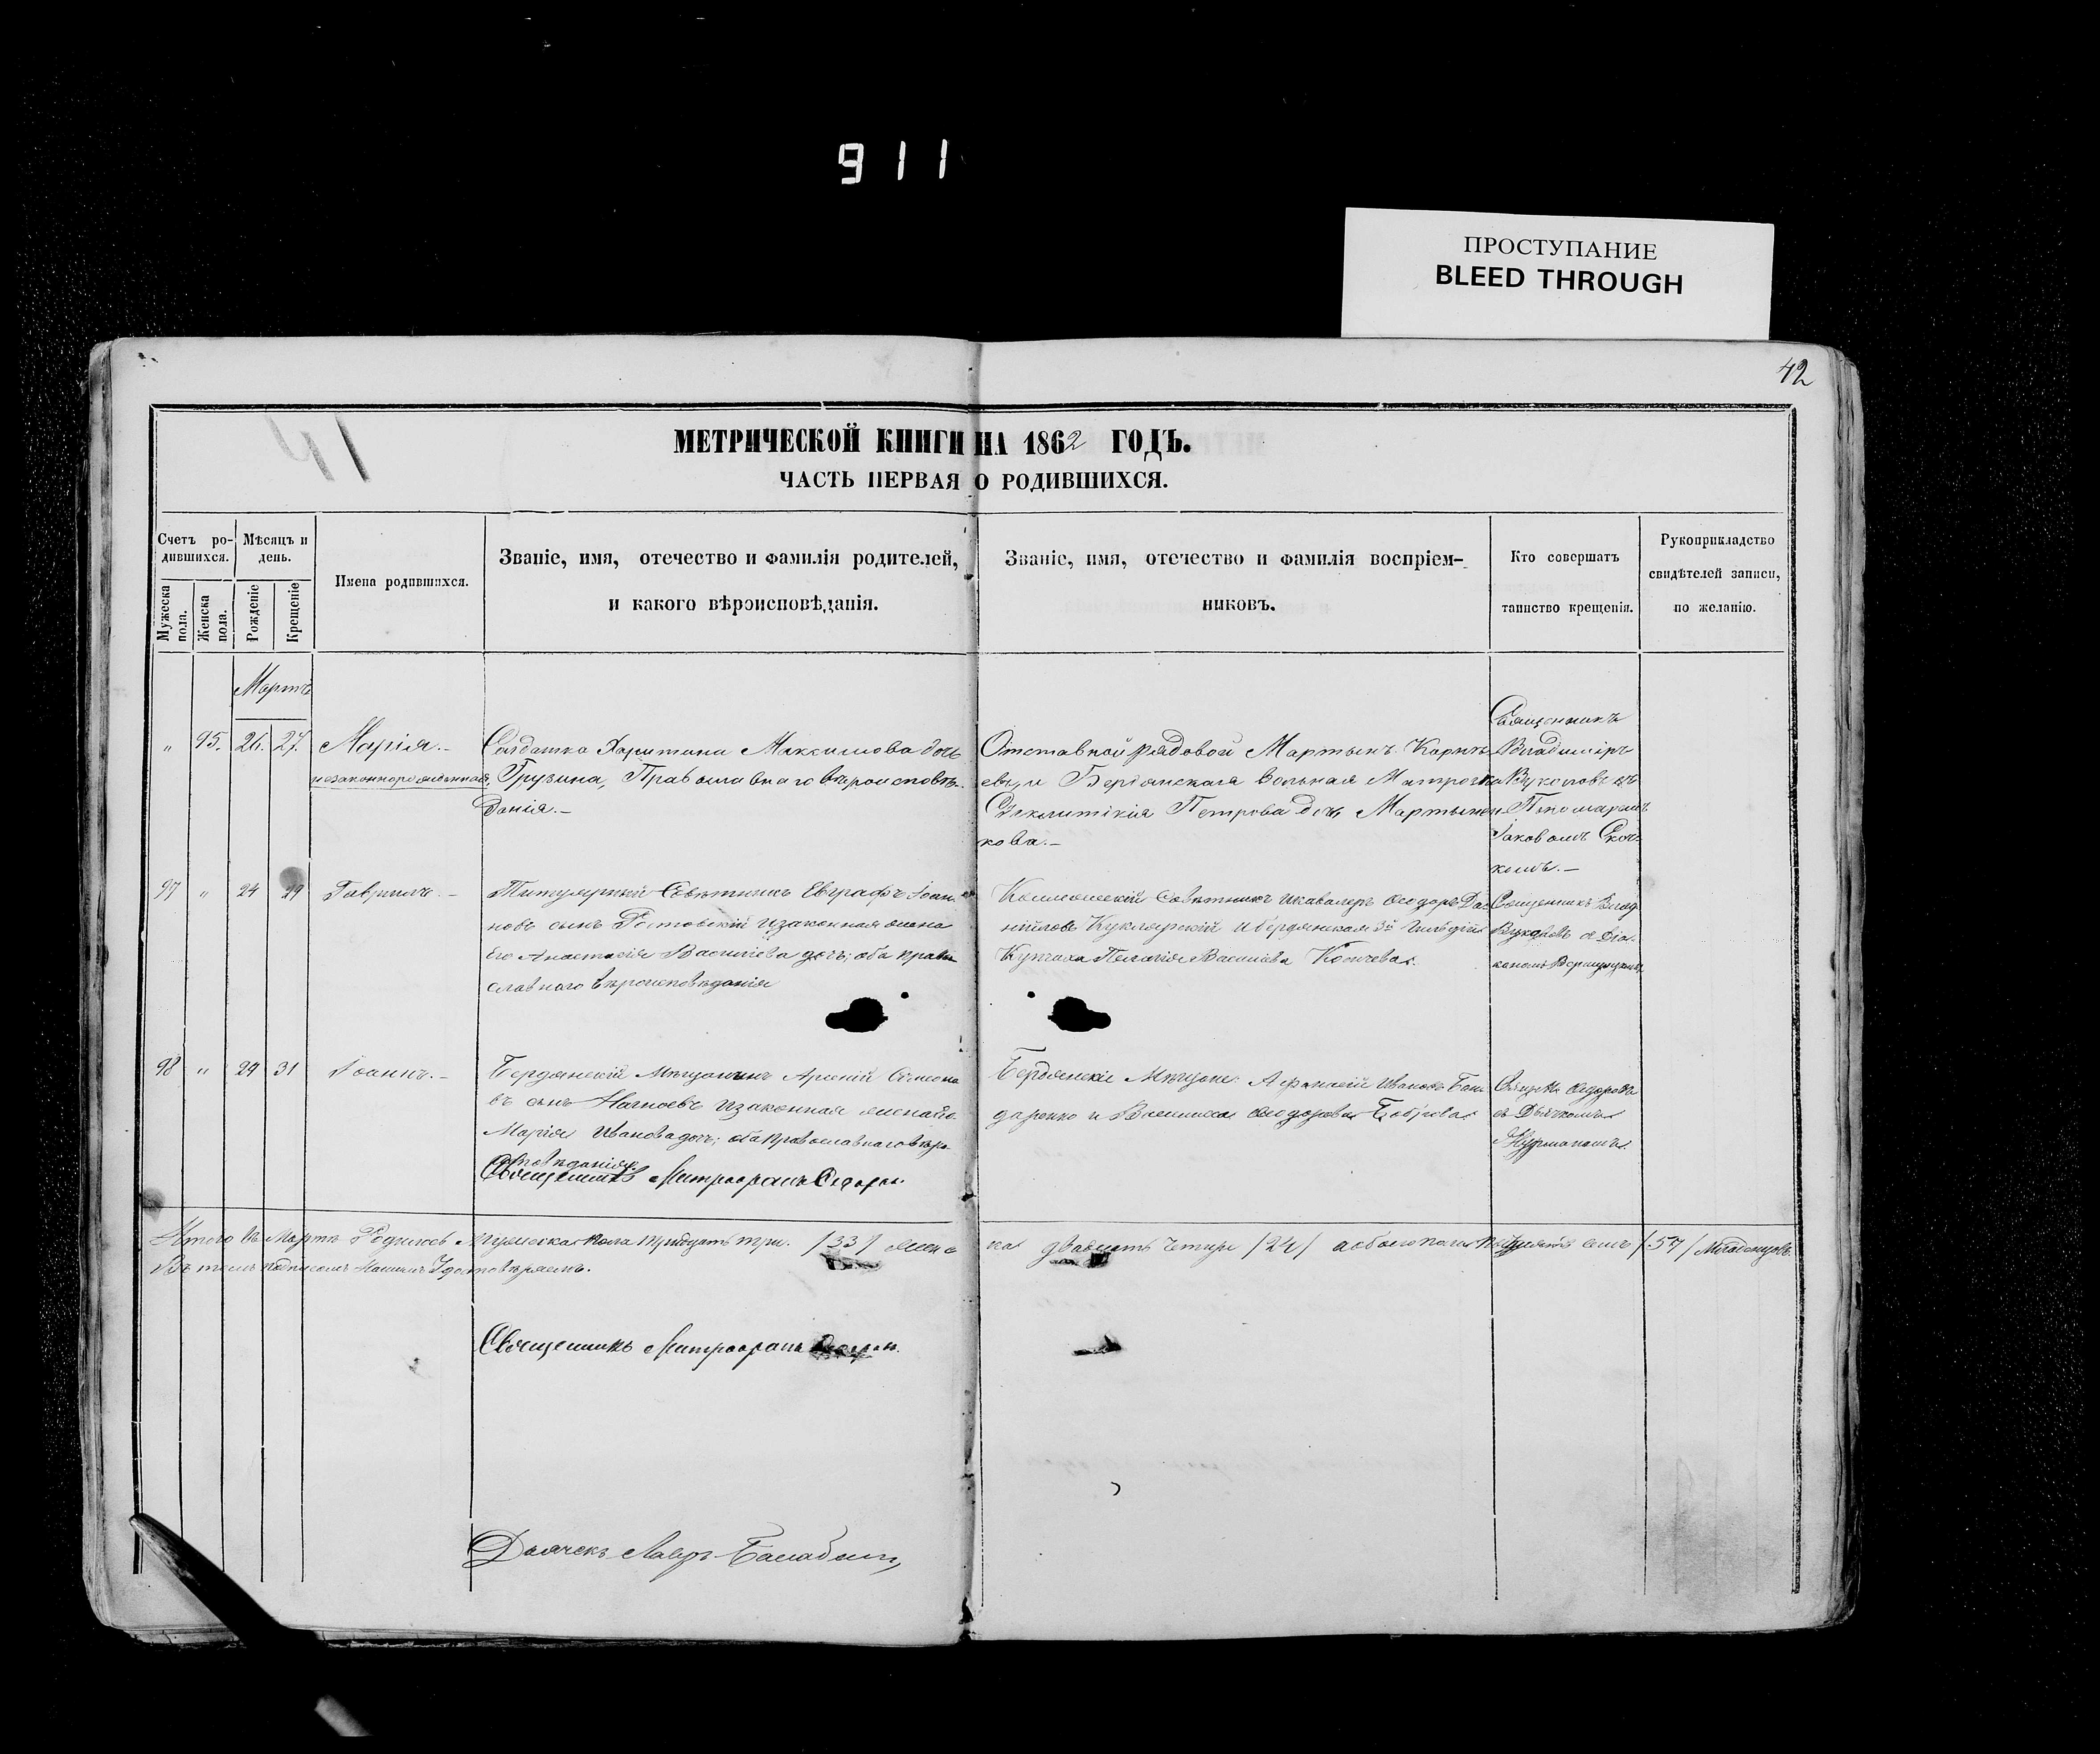 911
ПРОСТУПАНИЕ
BLEED THROUGH
42
МЕТРИЧЕСКОЙ КНИГИ НА 1862 ГОДЪ.
ЧАСТЬ ПЕРВАЯ О РОДИВШИХСЯ.
Счетъ ро-
дившихся.
Мужеска пола.
Женска пола.
Мѣсяцъ и
день.
Рожденіе
Крещеніе
Имена родившихся.
Званіе, имя, отечество и фамилія родителей,
и какого вѣроисповѣданія.
Званіе, имя, отечество и фамилія воспріем-
никовъ.
Кто совершатъ
таинство крещенія.
Рукоприкладство
свидѣтелей записи,
по желанію.
Мартъ
" 95. 26. 27. Марія.-
незаконнорожденная.
Солдатка Харитина Максимова дочь
Грузина, Православнаго вѣроисповѣ-
данія.-
Отставной рядовой Мартынъ Карпѣ-
евъ, и Бердянская вольная Матроска
Петрова дочь Мартынен-
кова.-
Священникъ
Владиміръ
Вуколовъ съ
Пономаремъ
Іаковомъ
97 " 24 29 Гавріилъ.-
Титулярный Совѣтникъ Евграфъ Іоан-
новъ сынъ Ростовскій и законная жена
его Анастасія Васильева дочь; оба право
славнаго вѣроисповѣданія
Коллежскій Совѣтникъ и кавалеръ Ѳеодоръ Да
ніиловъ Куклярскій и бердянская 3й гильдіи
Купчиха Пелагія Васильева
Священникъ Влад
Вуколовъ съ Діа-
кономъ
98 " 29 31 Іоаннъ.-
Бердянскій Мѣщанинъ Арсеній Симеоно
въ сынъ и законная жена его
Марія Иванова дочь; оба православнаго вѣро
исповѣданія
Бердянскіе Мѣщане: Афанасій Ивановъ Бон
даренко и Василиса Ѳеодорова
съ Дьячкомъ
Священникъ Митрофанъ
Итого въ Мартѣ Родилось Мужеска пола тридцать три /33/ женс
ка двадцать четыре /24/ а обоего пола пятьдесятъ семь /57/ Младенцовъ.
Въ томъ подписомъ Нашимъ Удостовѣряемъ.
Священникъ Митрофанъ
Дьячекъ Лавръ